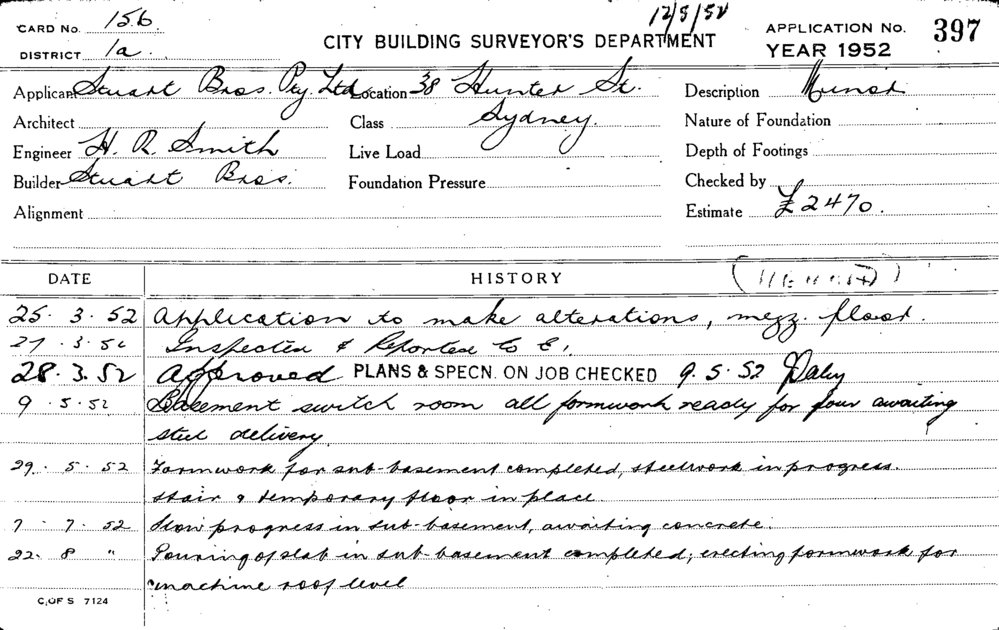 CARD No. 156 12/5/52 APPLICATION No. 397
DISTRICT 1a. CITY BUILDING SURVEYOR'S DEPARTMENT YEAR 1952
Applicant Stuart Bros. Pty. Ltd. Location 38 Hunter St. Description Minor
Architect Class Sydney. Nature of Foundation
Engineer H. R. Smith Live Load Depth of Footings
Builder Stuart Bros. Foundation Pressure Checked by
Alignment Estimate £2470.
DATE HISTORY
25. 3. 52 Application to make alterations, mezz. floor.
27. 3. 52 Inspected & Reported to E.
28. 3. 52 Approved PLANS & SPECN. ON JOB CHECKED 9. 5. 52 Daly
9. 5. 52 Basement switch room all formwork ready for pour awaiting
steel delivery.
29. 5. 52 Formwork for sub-basement completed, steelwork in progress.
stair & temporary floor in place.
7. 7. 52 Slow progress in sub-basement, awaiting concrete.
22. 8 " Pouring of slab in sub-basement completed; erecting formwork for
machine roof level
C. OF S 7124